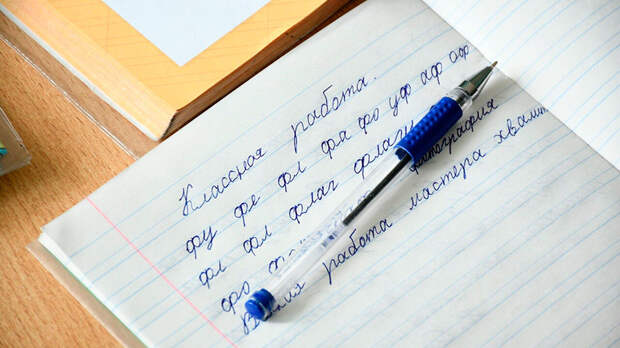 Классная работа.
фу фе фл фа фо уф аф оф
фл фл флаг флаги
фо фотография
Всякая работа мастера хвалит